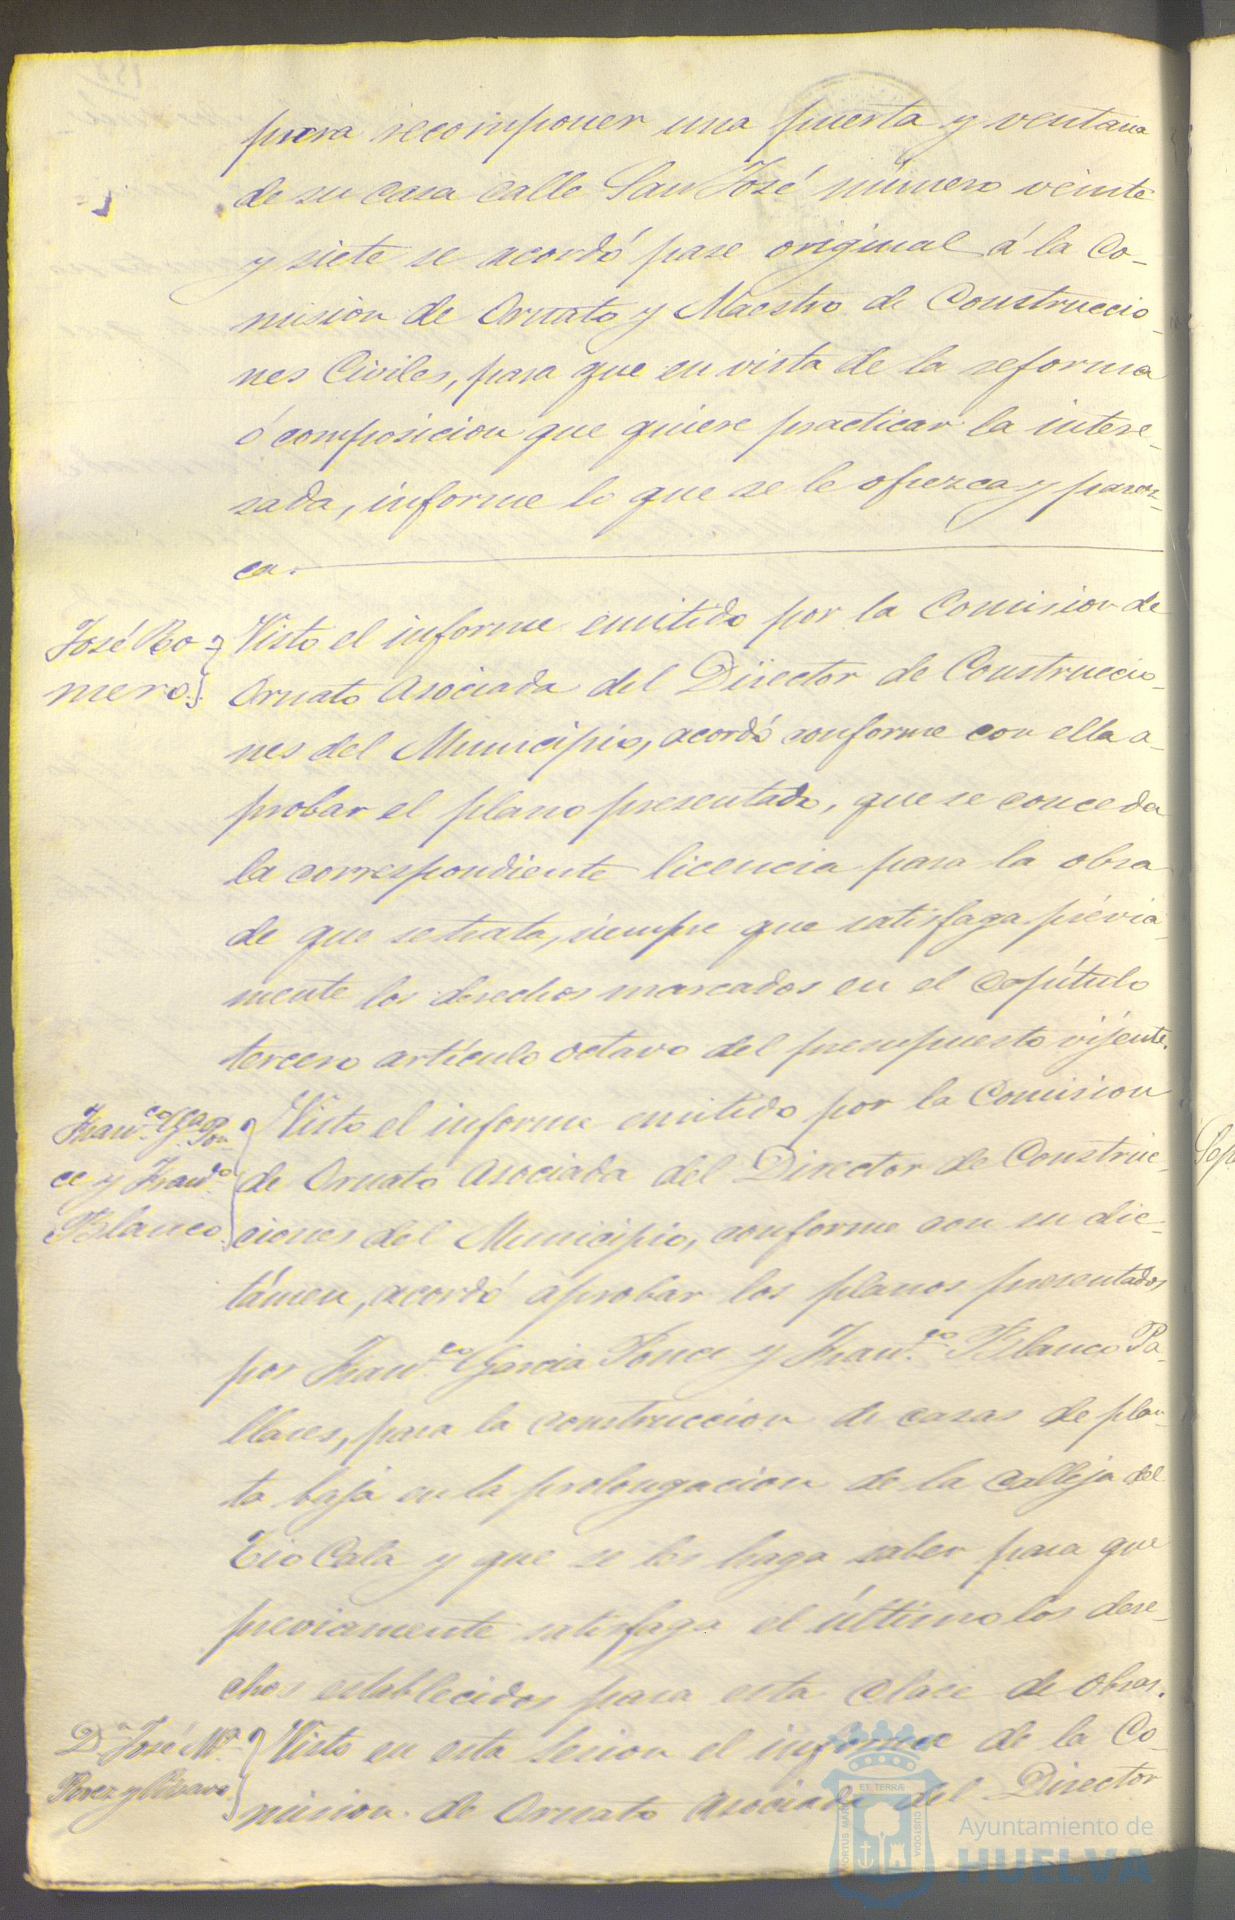 para recomponer una puerta y ventana
de su casa calle San José número veinte
y siete se acordó pase original á la Co-
mision de Ornato y Maestro de Construccio-
nes Civiles, para que en vista de la reforma
ó composicion que quiere practicar la intere-
sada, informe lo que se le ofrezca y parez-
ca.
José Ro-
mero.
Visto el informe emitido por la Comision de
Ornato Asociada del Director de Construccio-
nes del Municipio, acordó conforme con ella a-
probar el plano presentado, que se conceda
la correspondiente licencia para la obra
de que se trata, siempre que satisfaga prévia-
mente los derechos marcados en el capítulo
tercero artículo octavo del presupuesto vijente.
Franco. Ga. Pon-
ce y Franco.
Blanco
Visto el informe emitido por la Comision
de Ornato Asociada del Director de Construc-
ciones del Municipio, conforme con su dic-
támen, acordó aprobar los planos presentados
por Franco. Garcia Ponce y Franco. Blanco Pa-
llares, para la construccion de casas de plan-
ta baja en la prolongacion de la Calleja del
Tio Cala y que se les haga saber para que
previamente satisfaga el último los dere-
chos establecidos para esta clase de obras.
Dn. José Ma.
Perez y
Visto en esta sesion el informe de la Co-
mision de Ornato Asociada del Director
ET TERRÆ
PORTUS MARIS
CUSTODIA
Ayuntamiento de
HUELVA